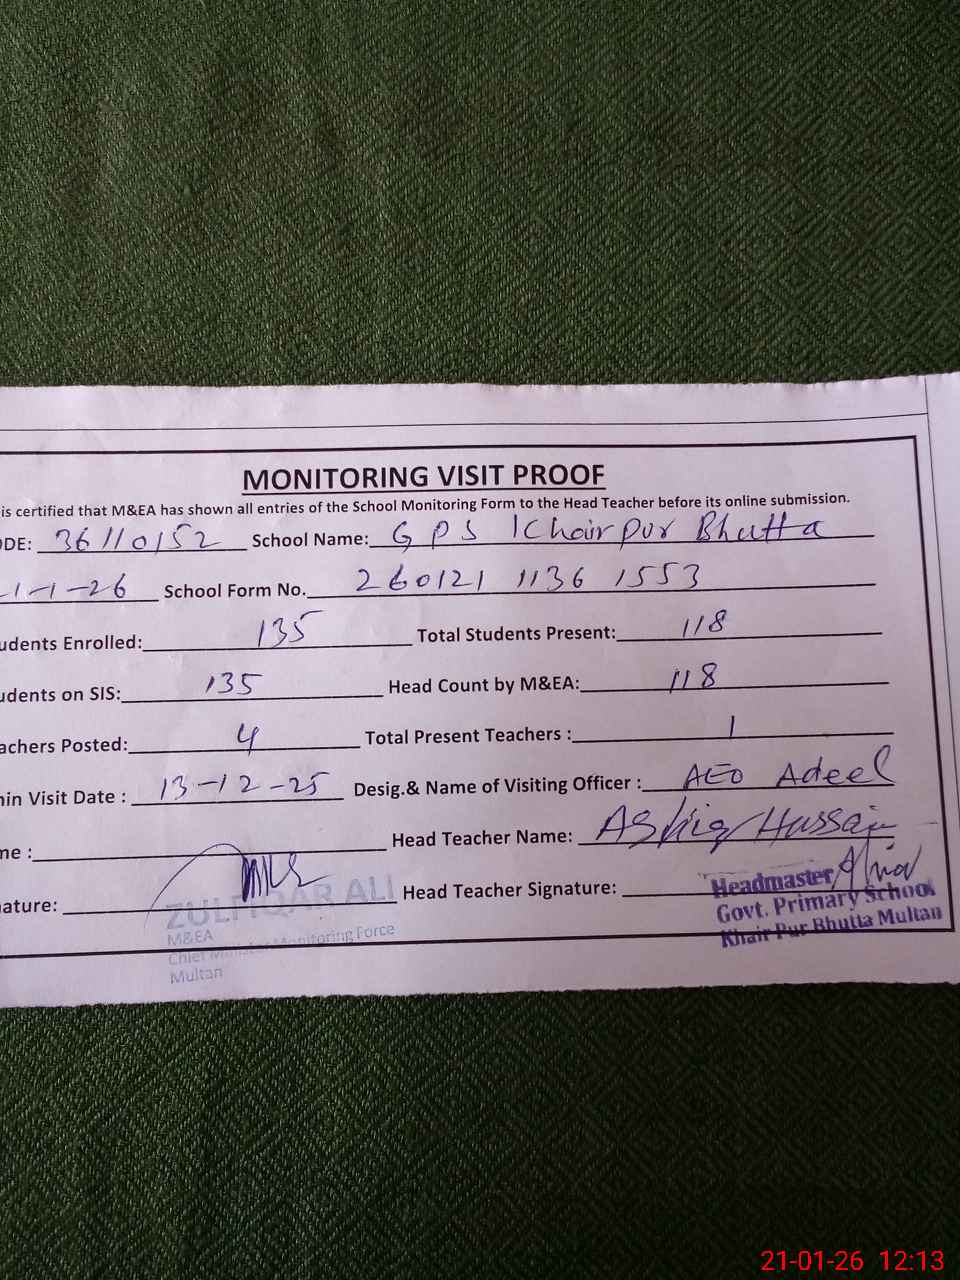 MONITORING VISIT PROOF
is certified that M&EA has shown all entries of the School Monitoring Form to the Head Teacher before its online submission.
ODE: 36110152 School Name: GPS Khairpur Bhutta
1-1-26 School Form No. 260121 1136 1553
udents Enrolled: 135 Total Students Present: 118
udents on SIS: 135 Head Count by M&EA: 118
achers Posted: 4 Total Present Teachers : 1
in Visit Date : 13-12-25 Desig.& Name of Visiting Officer : AEO Adeel
me : Head Teacher Name: Ashiq Hussain
ature: Head Teacher Signature:
ZULFIQAR ALI
M&EA
Chief Minister Monitoring Force
Multan
Headmaster
Govt. Primary School
Khair Pur Bhutta Multan
21-01-26 12:13